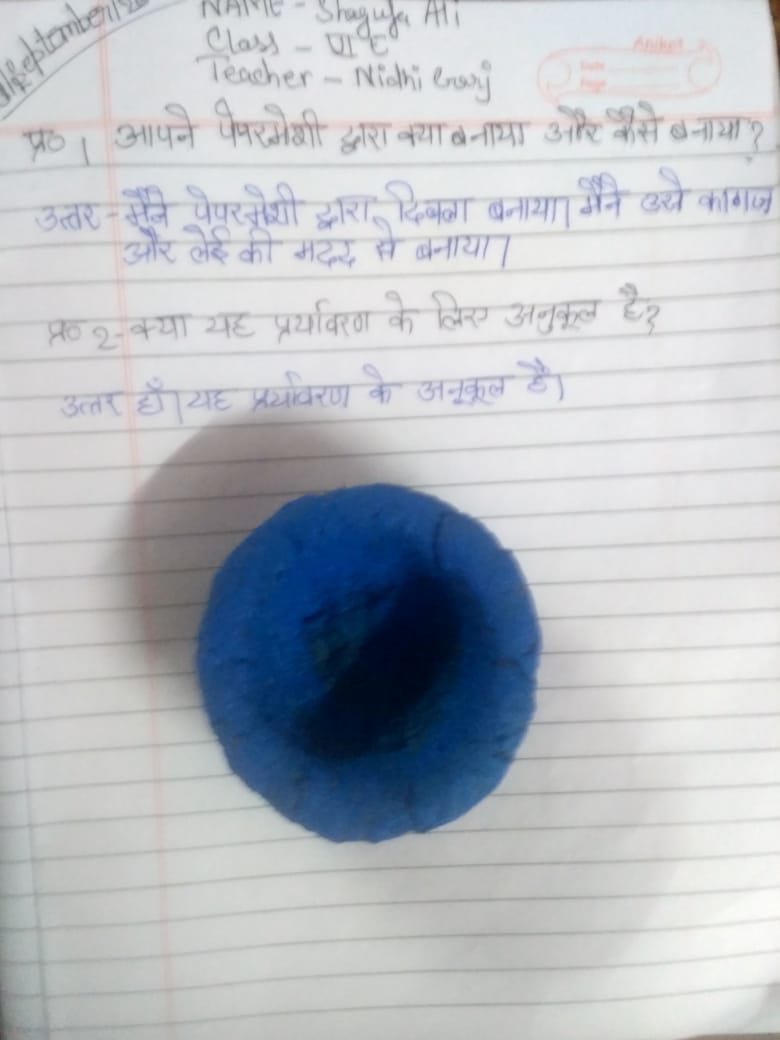 September
NAME - Shagufa Ali
Class - VI E
Teacher - Nidhi Garj
Aniket
Date
Page
प्र० 1 आपने पेपरमेशी द्वारा क्या बनाया और कैसे बनाया?
उत्तर - मैंने पेपरमेशी द्वारा, दिबला बनाया। मैंने उसे कागज
और लेई की मदद से बनाया।
प्र० 2- क्या यह प्रर्यावरण के लिए अनुकूल है?
उत्तर हाँ। यह प्रर्यावरण के अनुकूल है।